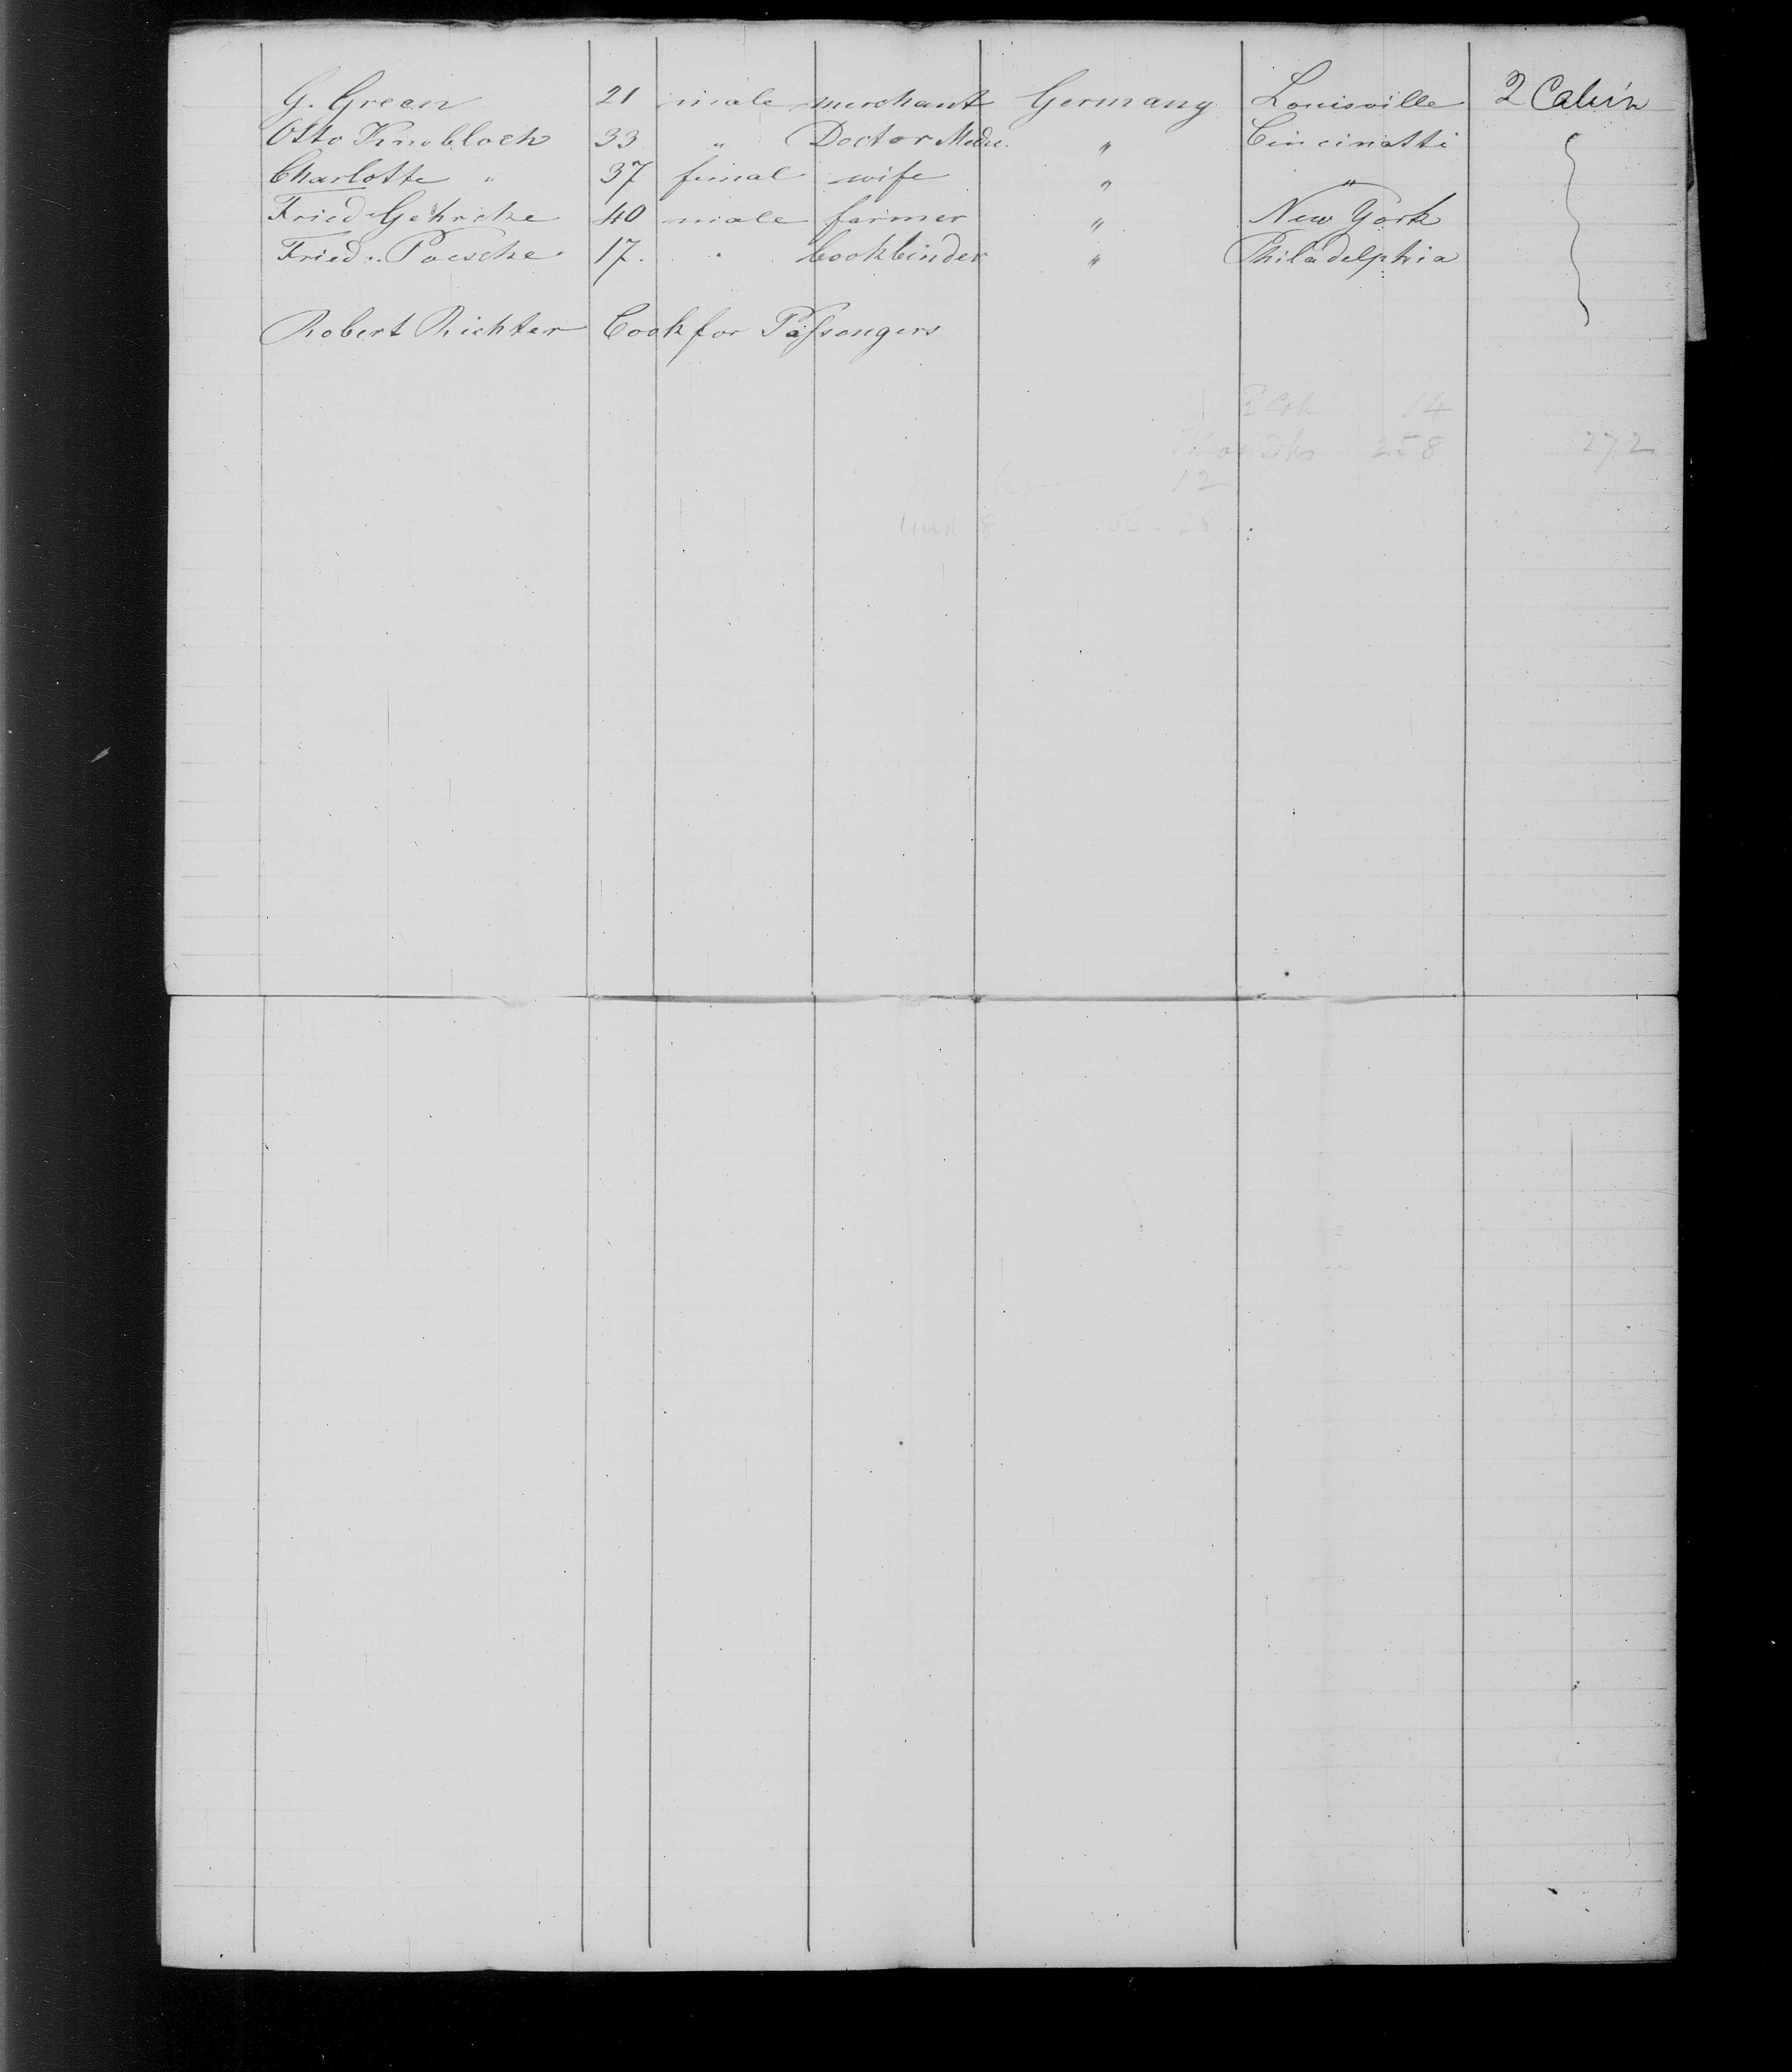 G. Green 21 male merchant Germany Louisville 2 Cabin
Otto Knobloch 33 " Doctor Medic. " Cincinatti
Charlotte " 37 femal wife " "
Fried. Gehrcke 40 male farmer " New York
Fried. Poesche 17. " bookbinder " Philadelphia
Robert Richter Cook for Passengers
14
258 272
12
8 56 28